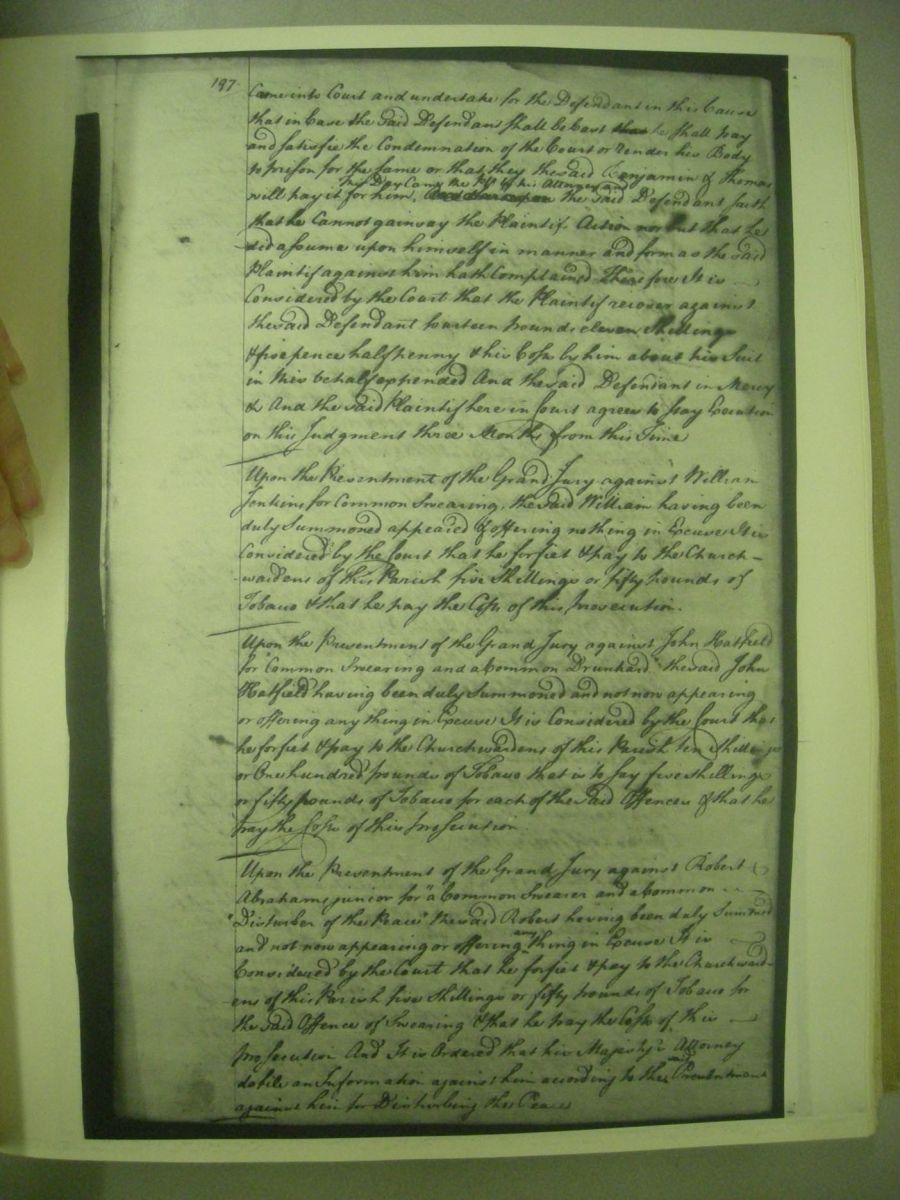 197
Came into Court and undertake for the Defendant in this Cause
that in Case the Said Defendant shall be Cast he shall pay
and satisfie the Condemnation of the Court or render his Body
to prison for the same or that they the said Benjamin & Thomas
This Day Came the Pft by his Attorney and
will pay it for him, And thereupon the said Defendant saith
that he Cannot gainsay the Plaintifs Action nor but that he
did assume upon himself in manner and form as the said
Plaintif against him hath Complained Therefore It is
Considered by the Court that the Plaintif recover against
the said Defendant fourteen pounds eleven Shillings
& five pence half penny & his Costs by him about his Suit
in this behalf expended And the said Defendant in Mercy
& And the said Plaintif here in Court agrees to stay Execution
on this Judgment three Months from this Time
Upon the Presentment of the Grand Jury against William
Jenkins for Common Swearing, the said William having been
duly Summoned appeared & offering nothing in Excuse It is
Considered by the Court that he forfiet & pay to the Church-
wardens of this Parish five Shillings or fifty pounds of
Tobaco & that he pay the Costs of this Prosecution.
Upon the Presentment of the Grand Jury against John Hatfield
for "Common Swearing and a Common Drunkard" the said John
Hatfield having been duly Summoned and not now appearing
or offering any thing in Excuse It is Considered by the Court that
he forfiet & pay to the Churchwardens of this Parish ten Shillings
or One hundred pounds of Tobaco that is to say five Shillings
or fifty pounds of Tobaco for each of the said Offences & that he
pay the Costs of this prosecution
Upon the Presentment of the Grand Jury against Robert
Abraham junior for "a Common Swearer and a Common
"Disturber of the Peace" the said Robert having been duly Summod
and not now appearing or offering any thing in Excuse It is
Considered by the Court that he forfiet & pay to the Churchward-
ens of this Parish five Shillings or fifty pounds of Tobaco for
the said Offence of Swearing & that he pay the Costs of this
prosecution And It is Ordered that his Majesty's Attorney
do file an Information against him according to the said Presentment
against him for Disturbing the Peace